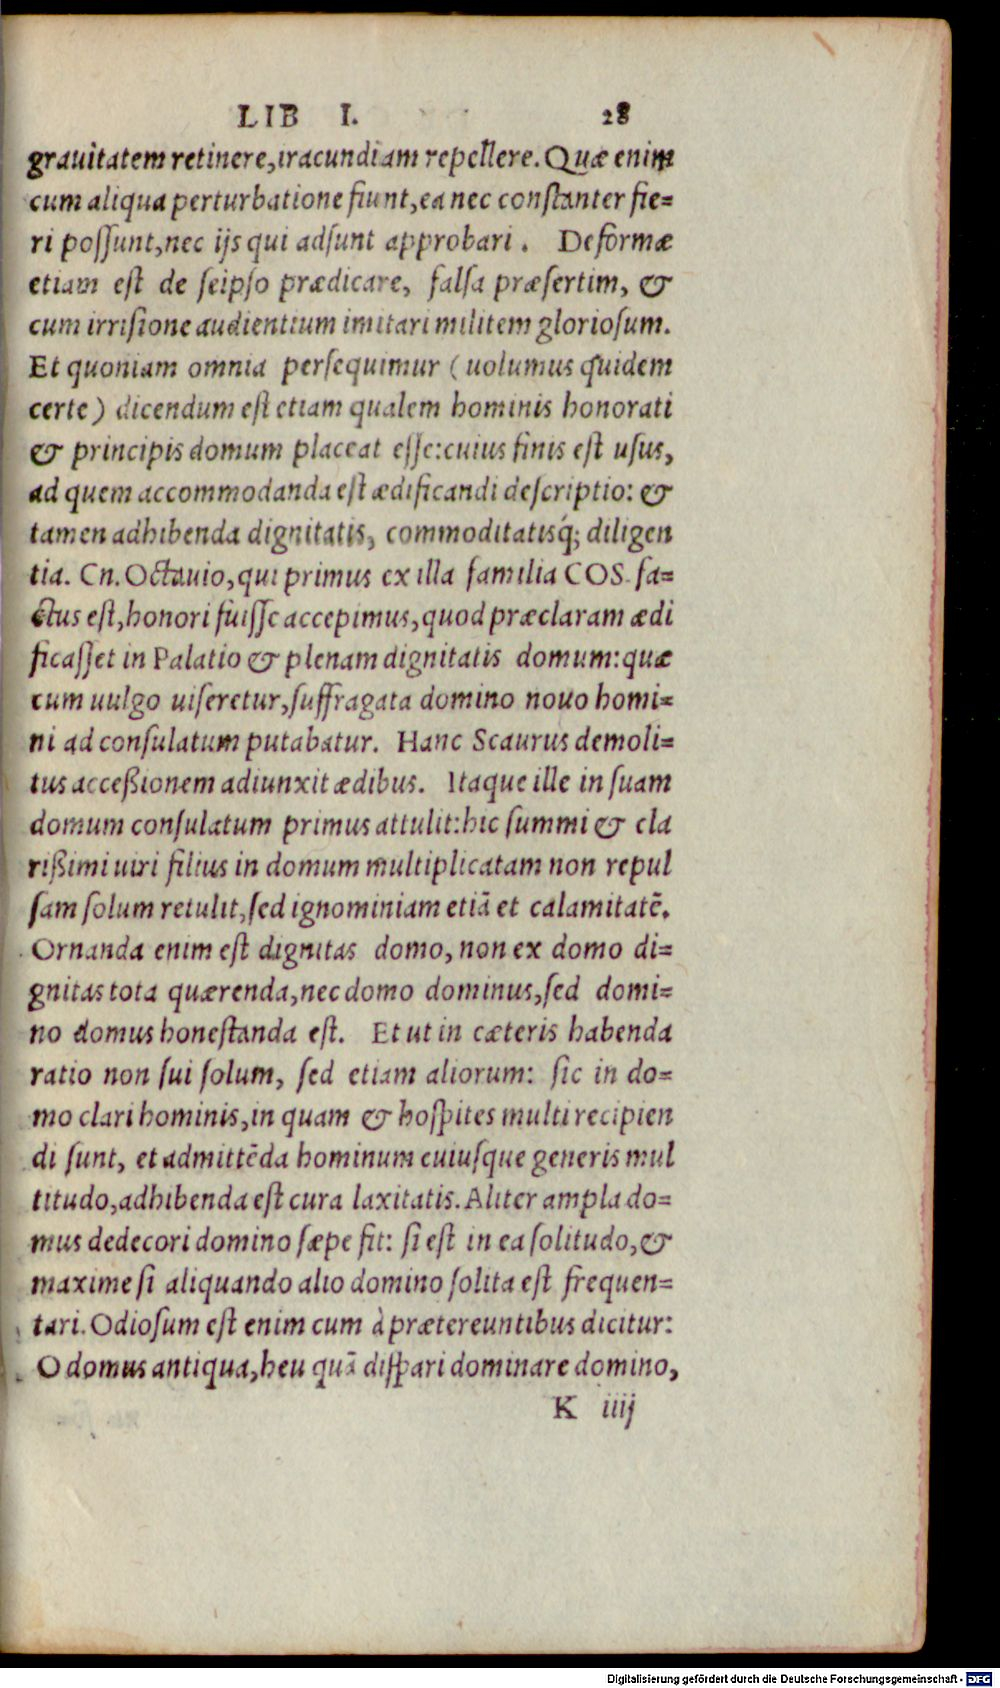 LIB I. 28
grauitatem retinere,iracundiam repellere. Quæ enim
cum aliqua perturbatione fiunt,ea nec constanter fie=
ri possunt,nec ijs qui adsunt approbari. Deformæ
etiam est de seipso prædicare, falsa præsertim, &
cum irrisione audientium imitari militem gloriosum.
Et quoniam omnia persequimur (uolumus quidem
certe) dicendum est etiam qualem hominis honorati
& principis domum placeat esse:cuius finis est usus,
ad quem accommodanda est ædificandi descriptio: &
tamen adhibenda dignitatis, commoditatisq́; diligen
tia. Cn. Octauio, qui primus ex illa familia COS. fa=
ctus est,honori fuisse accepimus,quod præclaram ædi
ficasset in Palatio & plenam dignitatis domum:quæ
cum uulgo uiseretur,suffragata domino nouo homi=
ni ad consulatum putabatur. Hanc Scaurus demoli=
tus acceßionem adiunxit ædibus. Itaque ille in suam
domum consulatum primus attulit:hic summi & cla
rißimi uiri filius in domum multiplicatam non repul
sam solum retulit,sed ignominiam etiā et calamitatē.
Ornanda enim est dignitas domo, non ex domo di=
gnitas tota quærenda,nec domo dominus,sed domi=
no domus honestanda est. Et ut in cæteris habenda
ratio non sui solum, sed etiam aliorum: sic in do=
mo clari hominis,in quam & hospites multi recipien
di sunt, et admittēda hominum cuiusque generis mul
titudo,adhibenda est cura laxitatis. Aliter ampla do=
mus dedecori domino sæpe fit: si est in ea solitudo,&
maxime si aliquando alio domino solita est frequen=
tari. Odiosum est enim cum à prætereuntibus dicitur:
O domus antiqua,heu quā dispari dominare domino,
K iiij
Digitalisierung gefördert durch die Deutsche Forschungsgemeinschaft - DFG